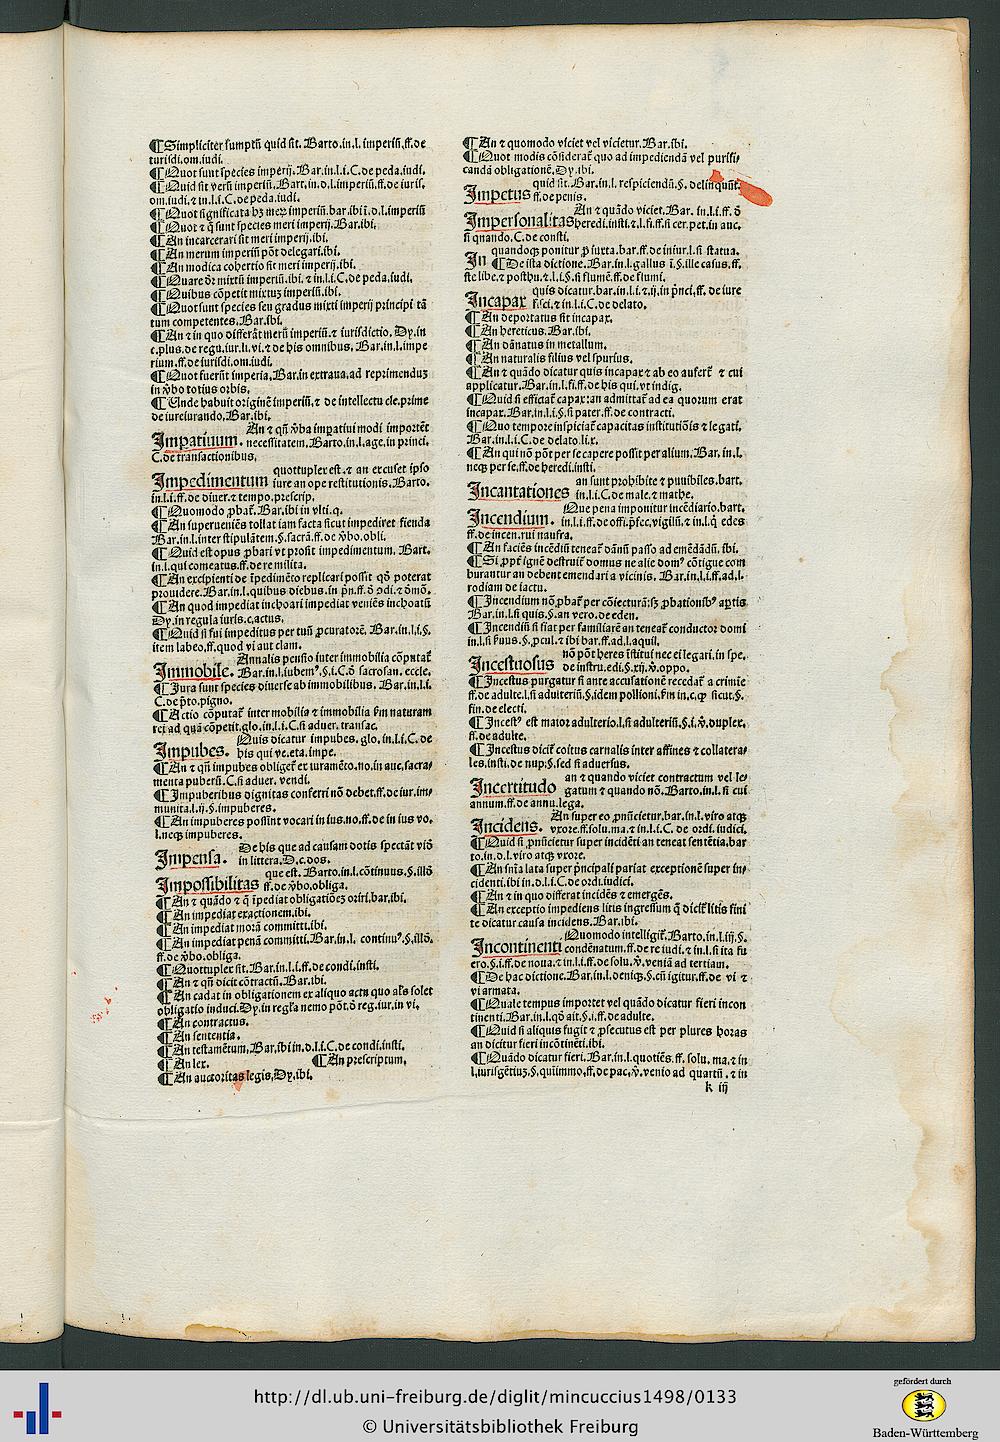 ¶Simpliciter sumptũ quid sit. Barto.in.l. imperiũ.ff.de
iurisdi.om.iudi.
¶Quot sunt species imperij. Bar.in.l.i.C.de peda.iudi.
¶Quid sit verũ imperiũ. Bart.in.d.l.imperiũ.ff.de iuris.
om.iudi.⁊ in.l.i.C.de peda.iudi.
¶Quot significata hꝫ meꝝ imperiũ.bar.ibi ĩ.d.l.imperiũ
¶Quot ⁊ q̃ sunt species meri imperij. Bar.ibi.
¶An incarcerari sit meri imperij.ibi.
¶An merum imperiũ põt delegari.ibi.
¶An modica cohertio sit meri imperij.ibi.
¶Quare dr̃ mixtũ imperiũ.ibi.⁊ in.l.i.C.de peda.iudi.
¶Quibus cõpetit mixtuʒ imperiũ.ibi.
¶Quot sunt species seu gradus mixti imperij principi tã
tum competentes. Bar.ibi.
¶An ⁊ in quo differãt merũ imperiũ.⁊ iurisdictio. Dy.in
c.plus.de regu.iur.li.vi.⁊ de his omnibus. Bar.in.l.impe
rium.ff.de iurisdi.om.iudi.
¶Quot fuerũt imperia. Bar.in extraua.ad reprimenduʒ
in v̾bo totius orbis.
¶Unde habuit originẽ imperiũ.⁊ de intellectu cle.prime
de iureiurando. Bar.ibi.
An ⁊ qñ v̾ba impatiui modi importẽt
Impatiuum. necessitatem. Barto.in.l.age.in princi.
C.de transactionibus.
quottuplex est.⁊ an excuset ipso
Impedimentum iure an ope restitutionis. Barto.
in.l.i.ff.de diuer.⁊ tempo.prescrip.
¶Quomodo ꝓbat᷑. Bar.ibi in vlti.q.
¶An superueniẽs tollat iam facta sicut impediret fienda
Bar.in.l.inter stipulãtem.§.sacrã.ff.de v̾bo.obli.
¶Quid est opus ꝓbari vt prosit impedimentum. Bart.
in.l.qui comeatus.ff.de re milita.
¶An excipienti de ĩpedimẽto replicari possit qd̾ poterat
prouidere. Bar.in.l.quibus diebus.in pñ.ff.d̾ ꝯdi.⁊ d̾mõ.
¶An quod impediat inchoari impediat veniẽs inchoatũ
Dy.in regula iuris.c.actus.
¶Quid si sui impeditus per tuũ ꝓcuratorẽ. Bar.in.l.i.§.
item labeo.ff.quod vi aut clam.
Annalis pensio inter immobilia cõputat᷑
Immobile. Bar.in.l.iubemꝰ.§.i.C.d̾ sacrosan. eccle.
¶Jura sunt species diuerse ab immobilibus. Bar.in.l.i.
C.de p̃to.pigno.
¶Actio cõputat᷑ inter mobilia ⁊ immobilia ẜm naturam
rei ad quã cõpetit.glo.in.l.i.C.si aduer. transac.
Quis dicatur impubes. glo.in.l.i.C. de
Impubes. his qui ve.eta.impe.
¶An ⁊ qñ impubes obliget᷑ ex iuramẽto.no.in auc.sacra-
menta puberũ.C.si aduer. vendi.
¶Impuberibus dignitas conferri nõ debet.ff.de iur.im-
munita.l.ij.§.impuberes.
¶An impuberes possint vocari in ius.no.ff.de in ius vo.
l.neqꝫ impuberes.
De his que ad causam dotis spectãt viõ
Impensa. in littera.D.c.dos.
que est. Barto.in.l.cõtinuus.§.illõ
Impossibilitas ff.de v̾bo.obliga.
¶An ⁊ quãdo ⁊ q̃ ĩpediat obligatiõeʒ oriri.bar.ibi.
¶An impediat exactionem.ibi.
¶An impediat morã committi.ibi.
¶An impediat penã committi. Bar.in.l. continuꝰ.§.illõ.
ff.de v̾bo.obliga.
¶Quottuplex sit. Bar.in.l.i.ff.de condi.insti.
¶An ⁊ qñ dicit cõtractũ. Bar.ibi.
¶An cadat in obligationem ex aliquo actu quo al̾s solet
obligatio induci. Dy.in regl̾a nemo põt.d̾ reg.iur.in vi.
¶An contractus.
¶An sententia.
¶An testamẽtum. Bar.ibi in.d.l.i.C.de condi.insti.
¶An lex. ¶An prescriptum.
¶An auctoritas legis. Dy.ibi.
¶An ⁊ quomodo viciet vel vicietur. Bar.ibi.
¶Quot modis cõsiderat᷑ quo ad impediendã vel purifi-
candã obligationẽ. Dy.ibi.
quid sit. Bar.in.l. respiciendũ.§. delinquũt.
Impetus ff.de penis.
An ⁊ quãdo viciet. Bar. in.l.i.ff. d̾
Impersonalitas heredi.insti.⁊.l.fi.ff.si cer.pet.in auc.
si quando. C.de consti.
quandoqꝫ ponitur ꝓ iuxta.bar.ff.de iniur.l.si statua.
In ¶De ista dictione. Bar.in.l.gallus ĩ.§.ille casus.ff.
de libe.⁊ posthu.⁊.l.i.§.si flumẽ.ff.de flumi.
quis dicatur.bar.in.l.i.⁊.ij.in p̾nci.ff. de iure
Incapax fisci.⁊ in.l.i.C.de delato.
¶An deportatus sit incapax.
¶An hereticus. Bar.ibi.
¶An dãnatus in metallum.
¶An naturalis filius vel spurius.
¶An ⁊ quãdo dicatur quis incapax ⁊ ab eo aufert᷑ ⁊ cui
applicatur. Bar.in.l.fi.ff.de his qui.vt indig.
¶Quid si efficiat᷑ capax:an admittat᷑ ad ea quorum erat
incapax. Bar.in.l.i.§.si pater.ff.de contracti.
¶Quo tempore inspiciat᷑ capacitas institutiõis ⁊ legati.
Bar.in.l.i.C.de delato.li.x.
¶An qui nõ põt per se capere possit per alium. Bar. in.l.
neqꝫ per se.ff.de heredi.insti.
an sunt prohibite ⁊ punibiles.bart.
Incantationes in.l.i.C.de male.⁊ mathe.
Que pena imponitur incẽdiario.bart.
Incendium. in.l.i.ff.de offi.p̃fec.vigilũ.⁊ in.l.q̾ edes
ff.de incen.rui naufra.
¶An faciẽs incẽdiũ teneat᷑ dãnũ passo ad emẽdãdũ. ibi.
¶Si ꝓpt᷑ ignẽ destruit᷑ domus ne alie domꝰ cõtigue com
burantur an debent emendari a vicinis. Bar.in.l.i.ff.ad.l.
rodiam de iactu.
¶Incendium nõ ꝓbat᷑ per cõiecturã:sʒ ꝓbationibꝰ aptis
Bar.in.l.si quis.§.an vero.de eden.
¶Incendiũ si fiat per familiarẽ an teneat᷑ conductor domi
in.l.si ẜuus.§.ꝓcul.⁊ ibi bar.ff.ad.l.aquil.
nõ põt heres ĩstitui nec ei legari.in spe.
Incestuosus de instru.edi.§.xij.v̾.oppo.
¶Incestus purgatur si ante accusationẽ recedat᷑ a crimĩe
ff.de adulte.l.si adulteriũ.§.idem pollioni.ẜm in.c.ꝙ sicut.§.
fin.de electi.
¶Incestꝰ est maior adulterio.l.si adulteriũ.§.i.v̾.duplex.
ff.de adulte.
¶Incestus dicit᷑ coitus carnalis inter affines ⁊ collatera-
les.insti.de nup.§.sed si aduersus.
an ⁊ quando viciet contractum vel le-
Incertitudo gatum ⁊ quando nõ. Barto.in.l. si cui
annum.ff.de annu.lega.
An super eo ꝓnũcietur.bar.in.l.viro atqꝫ
Incidens. vxore.ff.solu.ma.⁊ in.l.i.C. de ordi. iudici.
¶Quid si ꝓnũcietur super incidẽti an teneat sentẽtia.bar
to.in.d.l.viro atqꝫ vxore.
¶An sñia lata super p̾ncipali pariat exceptionẽ super in-
cidenti.ibi in.d.l.i.C.de ordi.iudici.
¶An ⁊ in quo differat incidẽs ⁊ emergẽs.
¶An exceptio impediens litis ingressum q̃ dicit᷑ litis fini
te dicatur causa incidens. Bar.ibi.
Quomodo intelligit᷑. Barto.in.l.iij.§.
Incontinenti condẽnatum.ff.de re iudi.⁊ in.l.si ita fu
ero.§.i.ff.de noua.⁊ in.l.i.ff.de solu.v̾.veniã ad tertiam.
¶De hac dictione. Bar.in.l.deniqꝫ.§.cũ igitur.ff.de vi ⁊
vi armata.
¶Quale tempus importet vel quãdo dicatur fieri incon
tinenti. Bar.in.l.qd̾ ait.§.i.ff.de adulte.
¶Quid si aliquis fugit ⁊ ꝓsecutus est per plures horas
an dicitur fieri incõtinẽti.ibi.
¶Quãdo dicatur fieri. Bar.in.l.quotiẽs.ff. solu. ma.⁊ in
l.iurisgẽtiuʒ.§.quiimmo.ff.de pac.v̾.venio ad quartũ.⁊ in
k iij
http://dl.ub.uni-freiburg.de/diglit/mincuccius1498/0133
© Universitätsbibliothek Freiburg
gefördert durch
Baden-Württemberg